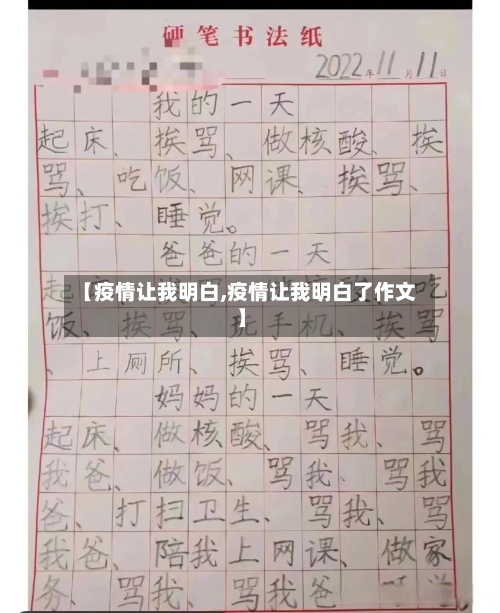 硬笔书法纸
2022年11月11日
我的一天
起床、挨骂、做核酸、挨
骂、吃饭、网课、挨骂、
挨打、睡觉。
爸爸的一天
【疫情让我明白,疫情让我明白了作文
】
起床、吃
饭、挨骂、玩手机、挨骂
、上厕所、挨骂、睡觉。
妈妈的一天
起床、做核酸、骂我、骂
我爸、做饭、骂我、骂我
爸、打扫卫生、骂我、骂
我爸、陪我上网课、做家
务、骂我、骂我爸